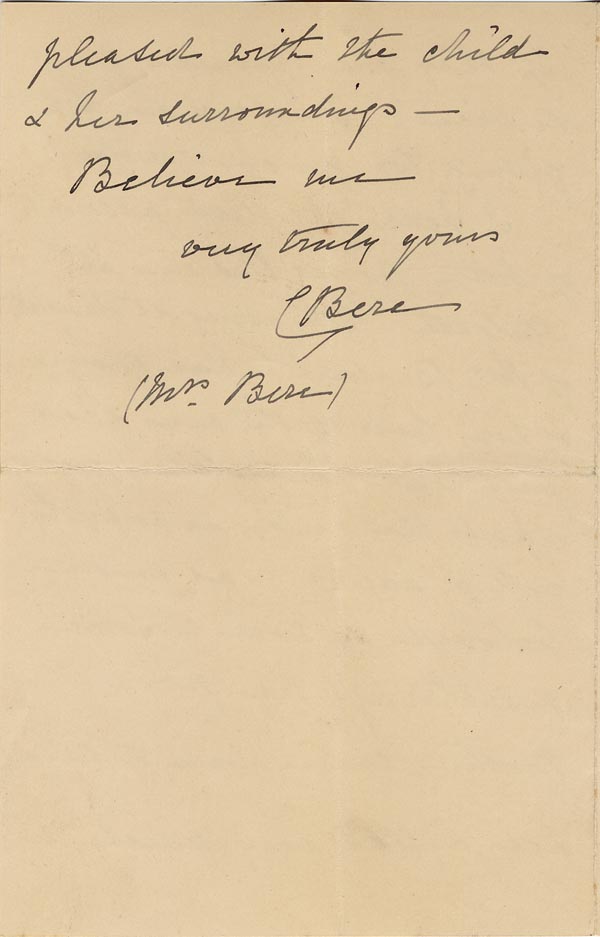 pleased with the child
& her surroundings —
Believe me
very truly yours
CBere
(Mrs. Bere)